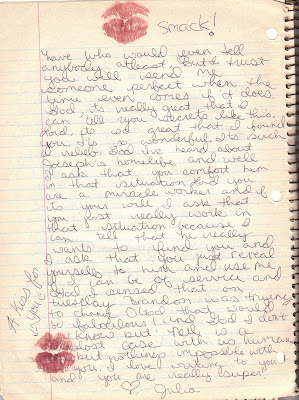 Smack!
have who would even tell
anybody atleast, but I trust
you will send me
someone perfect when the
time even comes if it does.
God, its really great that I
can tell you secrets like this.
Lord, its so great that I found
you its so wonderful its such
a releif. God I've heard about
Joeseph's homelife and well
I ask that you comfort him
in that situation. God you
are a miracle worker and if
its your will I ask that
you just really work in
that situation because I
can tell that he really
wants to find you and
I ask that you just reveal
yourself to him and use me
if I can be of service and
God I sensed that on
Tuesday Brandon was trying
to change. O God that would
be fabulous! and God I don't
know but Nelly is a
lost case with us humans
but nothings impossible with
you. I love writing to you
and you are really super
♡ Julia
A Kiss for
you